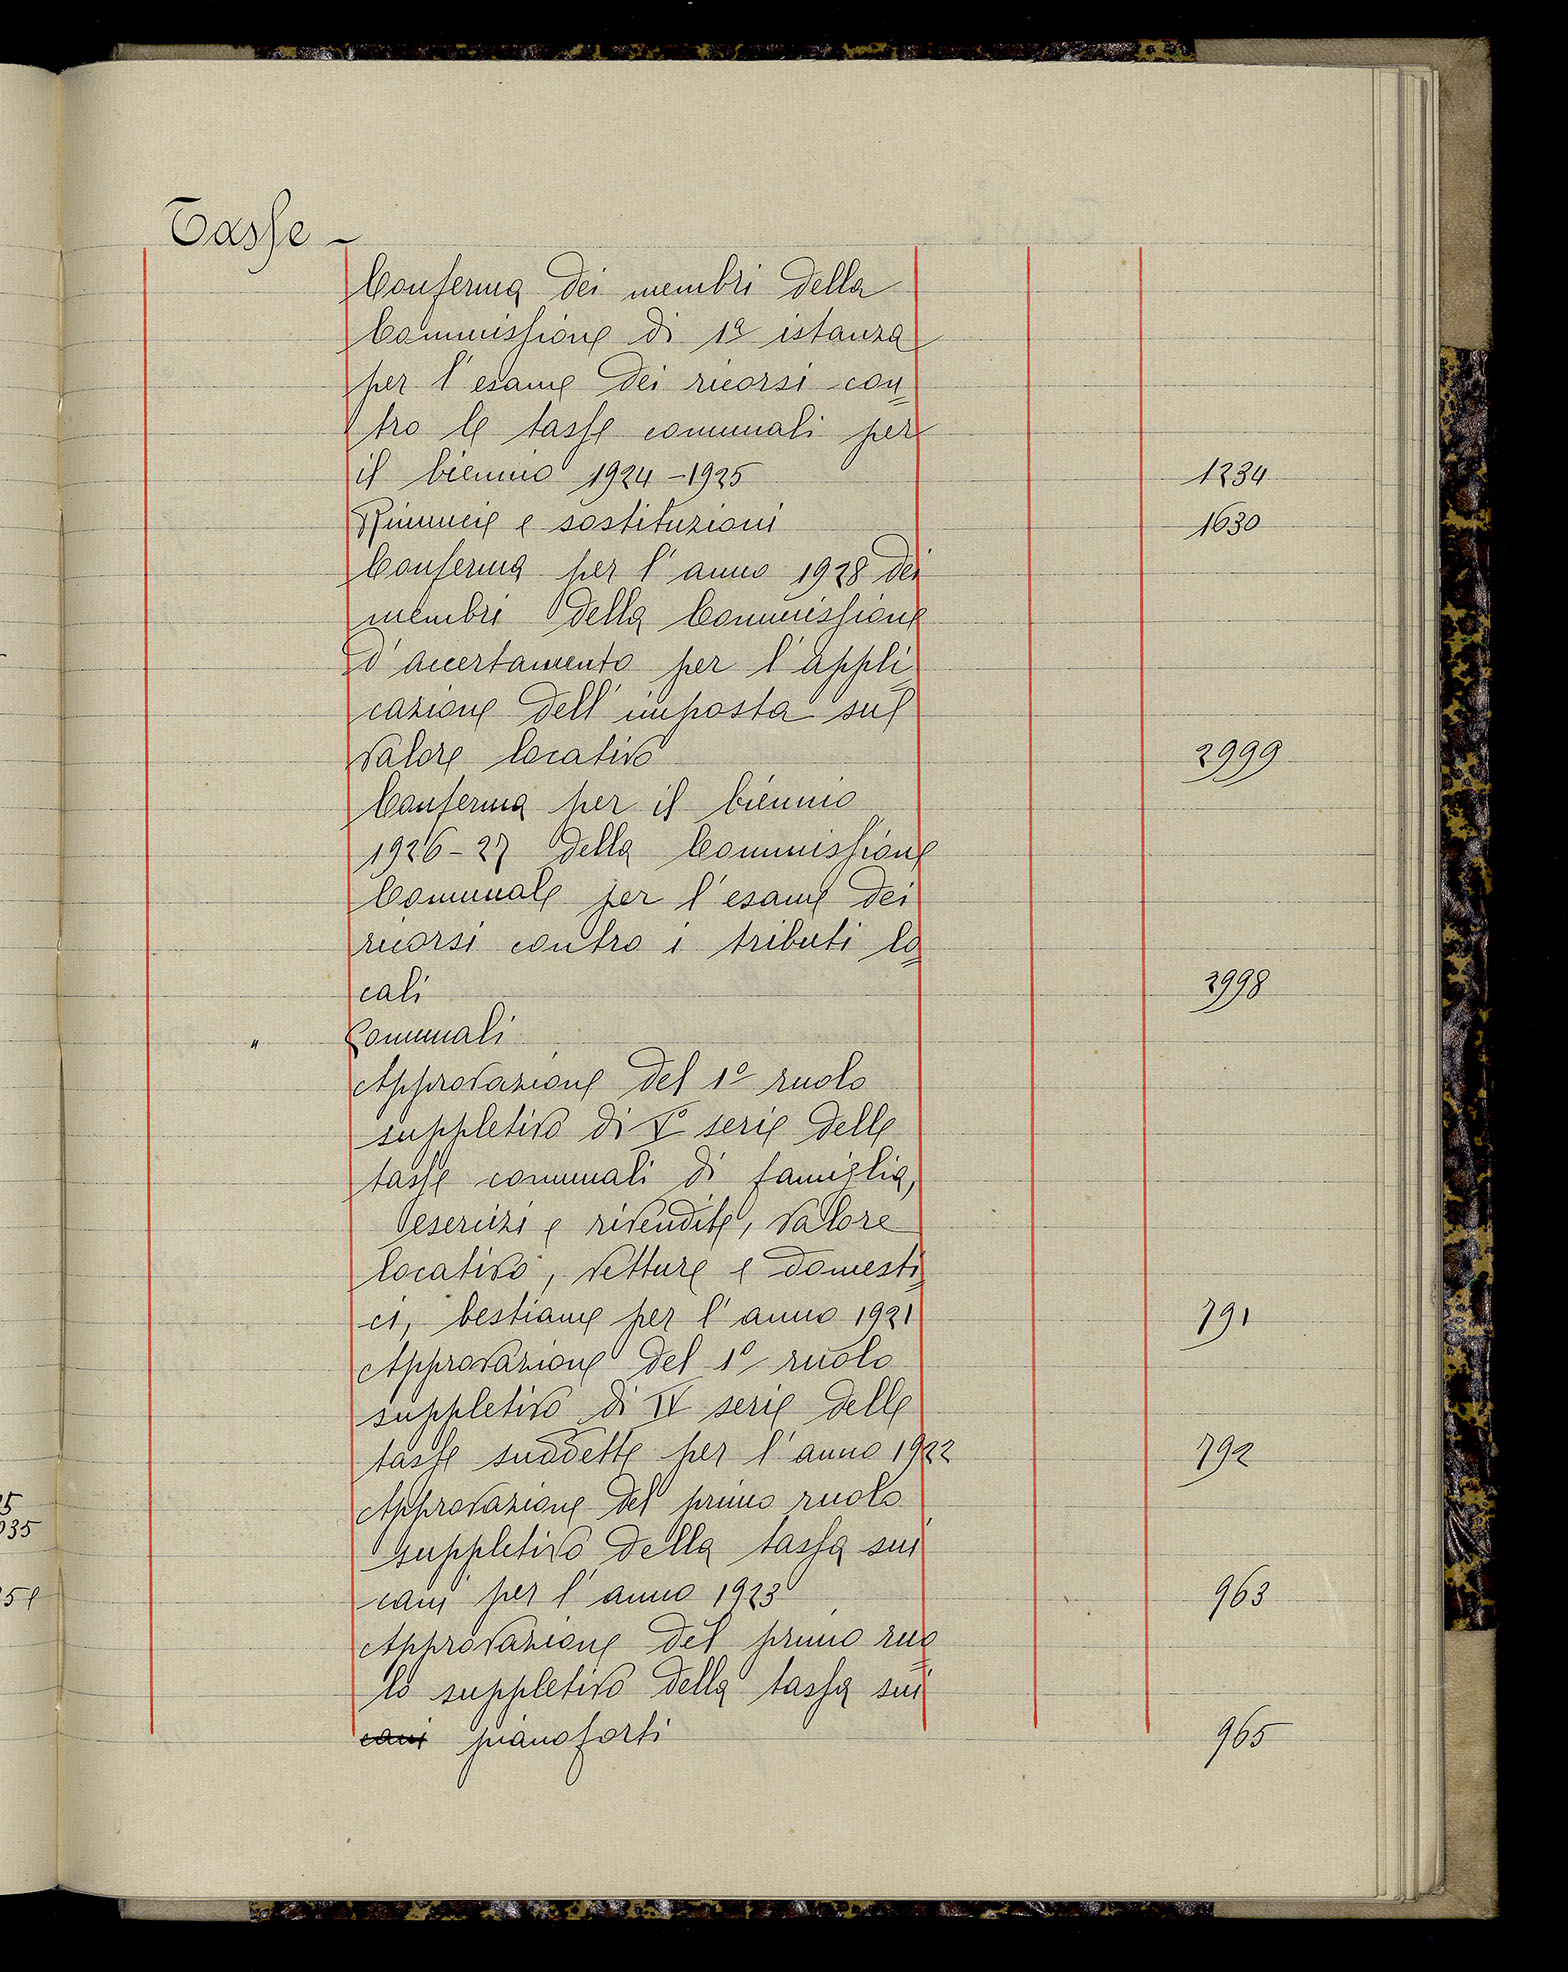 Tasse -
Conferma dei membri della
Commissione di 1ª istanza
per l'esame dei ricorsi con=
tro le tasse comunali per
il biennio 1924-1925 1234
Rinuncie e sostituzioni 1630
Conferma per l'anno 1928 dei
membri della Commissione
d'accertamento per l'appli=
cazione dell'imposta sul
valore locativo 2999
Conferma per il biennio
1926-27 della Commissione
Comunale per l'esame dei
ricorsi contro i tributi lo=
cali 2998
" Comunali
Approvazione del 1º ruolo
suppletivo di Vº serie delle
tasse comunali di famiglia,
esercizi e rivendite, valore
locativo, vetture e domesti=
ci, bestiame per l'anno 1921 791
Approvazione del 1º ruolo
suppletivo di IV serie delle
tasse suddette per l'anno 1922 792
Approvazione del primo ruolo
suppletivo della tassa sui
cani per l'anno 1923 963
Approvazione del primo ruo=
lo suppletivo della tassa sui
cani pianoforti 965
35